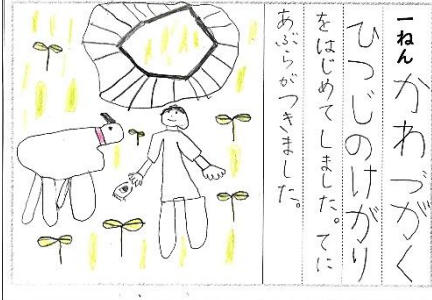 一ねん かわづがく
ひつじのけがり
をはじめてしました。てに
あぶらがつきました。